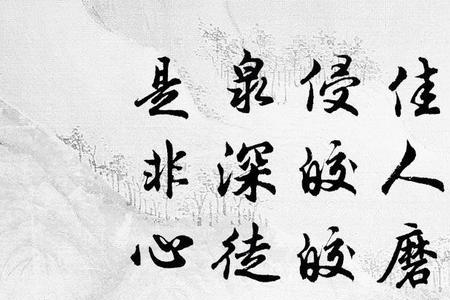 佳人磨
侵皎皎
泉深徒
是非心